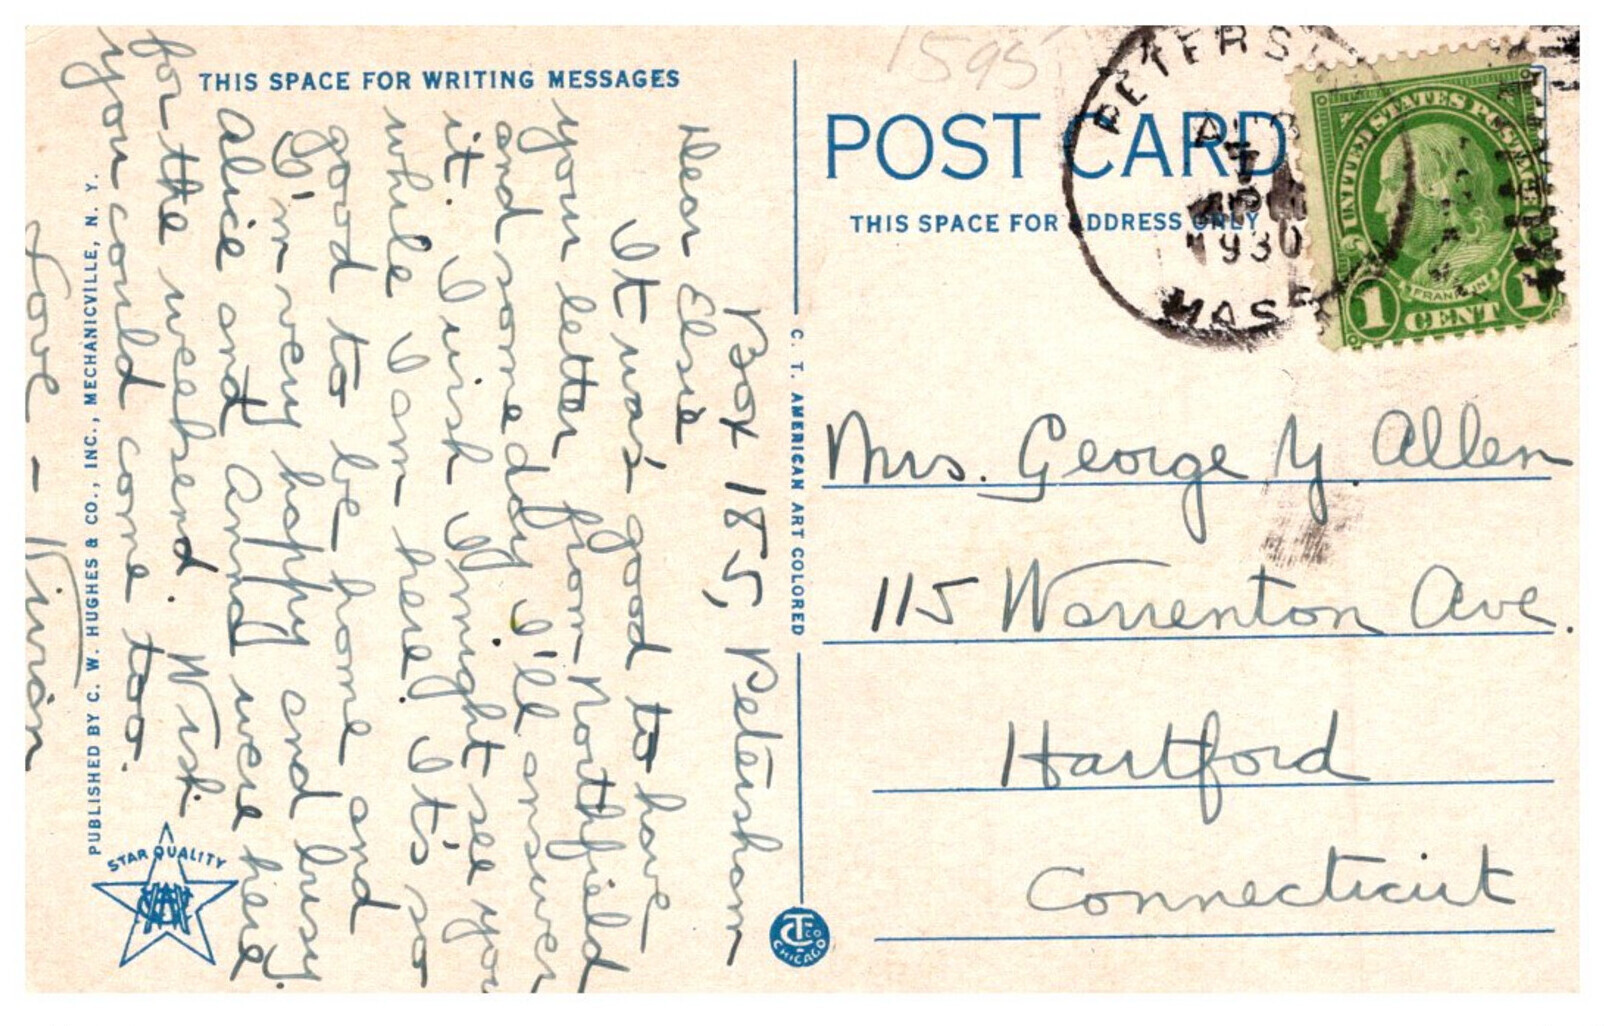 THIS SPACE FOR WRITING MESSAGES
Box 185, Petersham
Dear Elsie
It was good to have
your letter from Northfield
and someday I'll answer
it. I wish I might see you
while I am here. It's so
good to be home and
I'm very happy and busy.
Alice and Anna were here
for the weekend. Wish
you could come too.
Love - Vivian
PUBLISHED BY C. W. HUGHES & CO., INC., MECHANICVILLE, N. Y.
STAR QUALITY
C. T. AMERICAN ART COLORED
CT CO
CHICAGO
1595
POST CARD
THIS SPACE FOR ADDRESS ONLY
PETERS
1930
MASS
UNITED STATES POSTAGE
FRANKLIN
1 CENT 1
Mrs. George Y. Allen
115 Warrenton Ave.
Hartford
Connecticut